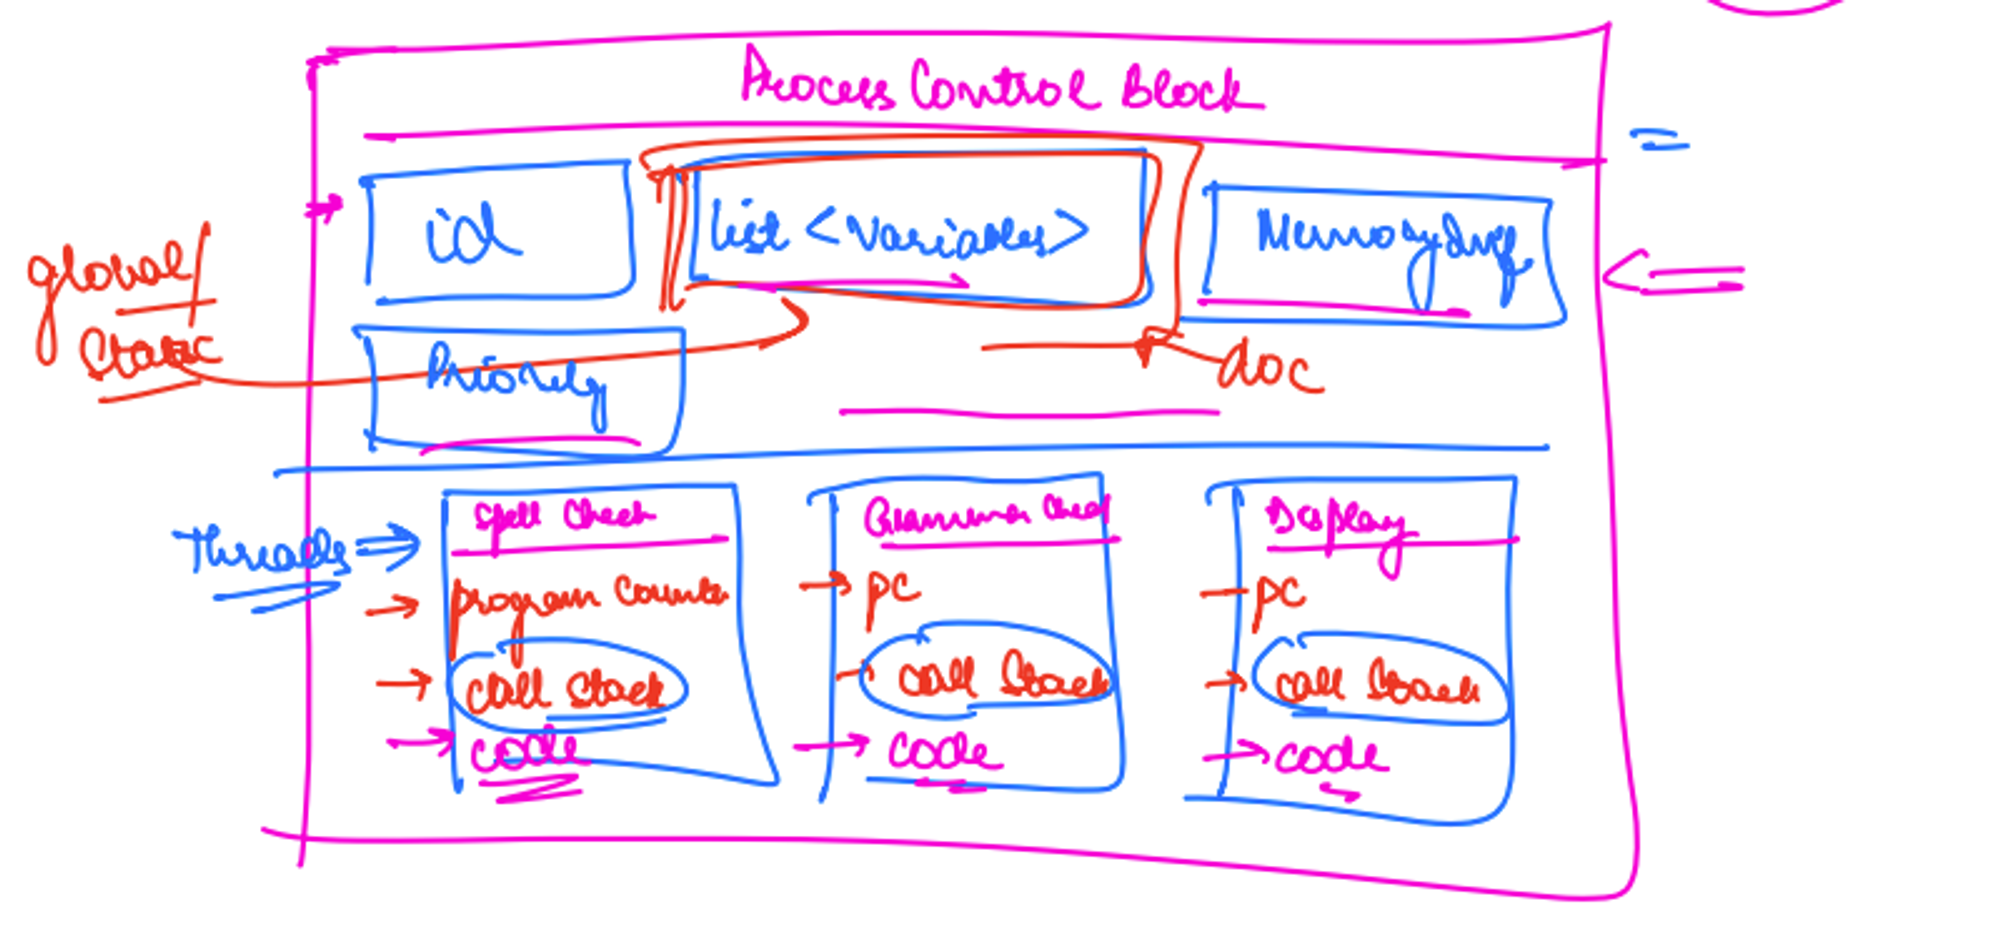 Process Control Block
id
List <Variables>
Memory Inf
global/
Static
Priority
doc
Threads
Spell Check
program Counter
Call Stack
code
Grammar Check
PC
Call Stack
code
Display
PC
Call Stack
code